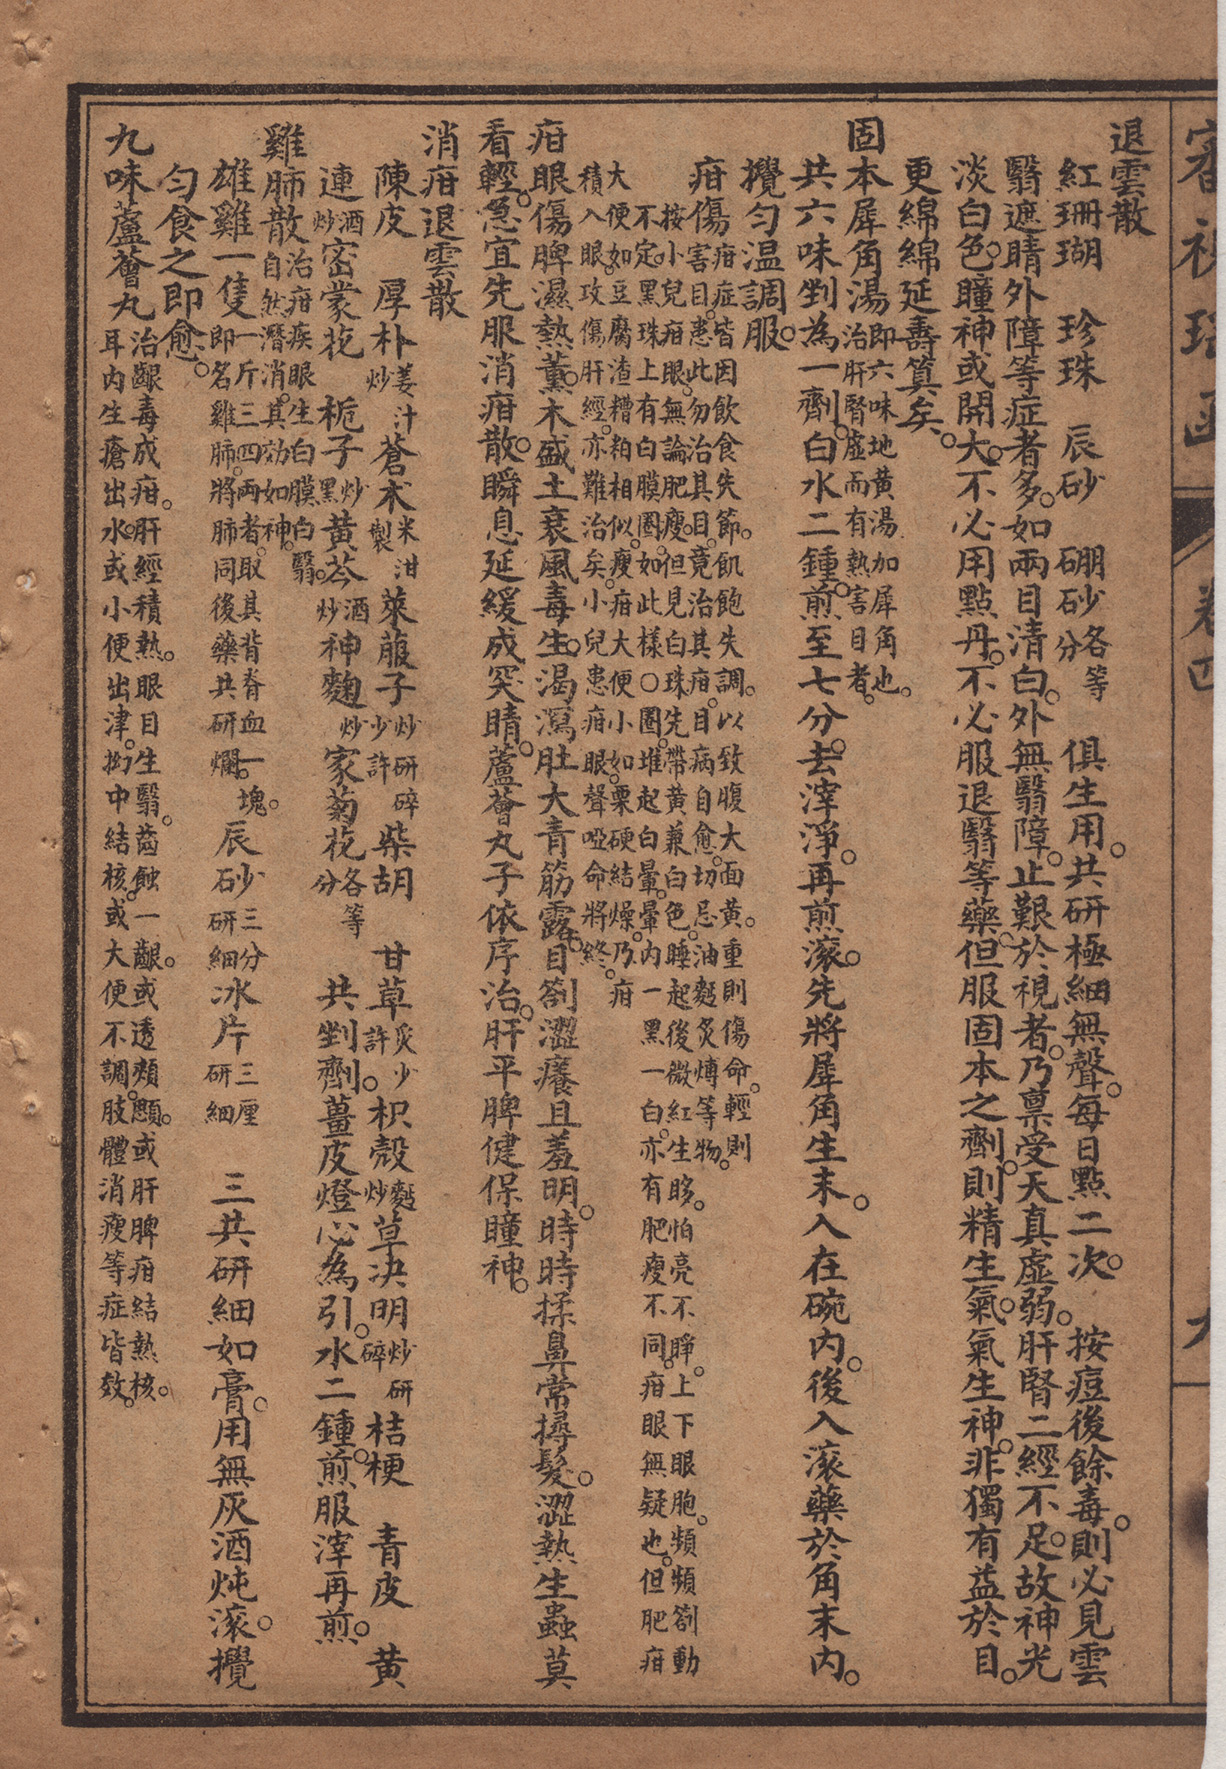 退雲散
紅珊瑚　珍珠　辰砂　硼砂各等分　俱生用。共研極細無聲。每日點二次。　按痘後餘毒。則必見雲
翳遮睛外障等症者多。如兩目清白。外無翳障。止艱於視者。乃稟受天真虛弱。肝腎二經不足。故神光
淡白色。瞳神或開大。不必用點丹。不必服退翳等藥。但服固本之劑。則精生氣。氣生神。非獨有益於目。
更綿綿延壽算矣。
固本犀角湯即六味地黃湯加犀角也。治肝腎虛而有熱害目者。
共六味剉為一劑。白水二鍾。煎至七分。去滓淨。再煎滾。先將犀角生末。入在碗內。後入滾藥於角末內。
攪勻溫調服。
疳傷疳症皆因飲食失節。飢飽失調。以致腹大面黃。重則傷命。輕則害目。患此勿治其目。竟治其疳。目病自愈。切忌油麪炙煿等物。
按小兒疳眼。無論肥瘦。但見白珠先帶黃兼白色。睡起後微紅生眵。怕亮不睜。上下眼胞。頻頻劄動
不定。黑珠上有白膜圈。如此樣○圈。堆起白暈。暈內一黑一白。亦有肥瘦不同。疳眼無疑也。但肥疳
大便如豆腐渣糟粕相似。瘦疳大便小如栗硬結燥。乃疳
積入眼。攻傷肝經。亦難治矣。小兒患疳眼聲啞命將終。
疳眼傷脾濕熱薰。木盛土衰風毒生。渴瀉肚大青筋露。目劄澀癢且羞明。時時揉鼻常撏髮。澀熱生蟲莫
看輕。急宜先服消疳散。瞬息延緩成突睛。蘆薈丸子依序治。肝平脾健保瞳神。
消疳退雲散
陳皮　厚朴姜汁炒　蒼朮米泔製　萊菔子炒研碎少許　柴胡　甘草炙少許　枳殼麩炒　草決明炒研碎　桔梗　青皮　黃
連酒炒　密蒙花　梔子炒黑　黃芩酒炒　神麴炒　家菊花各等分　共剉劑。薑皮燈心為引。水二鍾。煎服滓再煎。
雞肺散治疳疾眼生白膜白翳。自然潛消。其効如神。
雄雞一隻一斤三四兩者。取其背脊血一塊。即名雞肺。將肺同後藥共研爛。　辰砂三分研細　冰片三厘研細　三共研細如膏。用無灰酒炖滾。攪
勻食之即愈。
九味蘆薈丸治齦毒成疳。肝經積熱。眼目生翳。齒蝕一齦。或透頰顋。或肝脾疳結熱核。
耳內生瘡出水。或小便出津。拗中結核。或大便不調。肢體消瘦等症皆效。